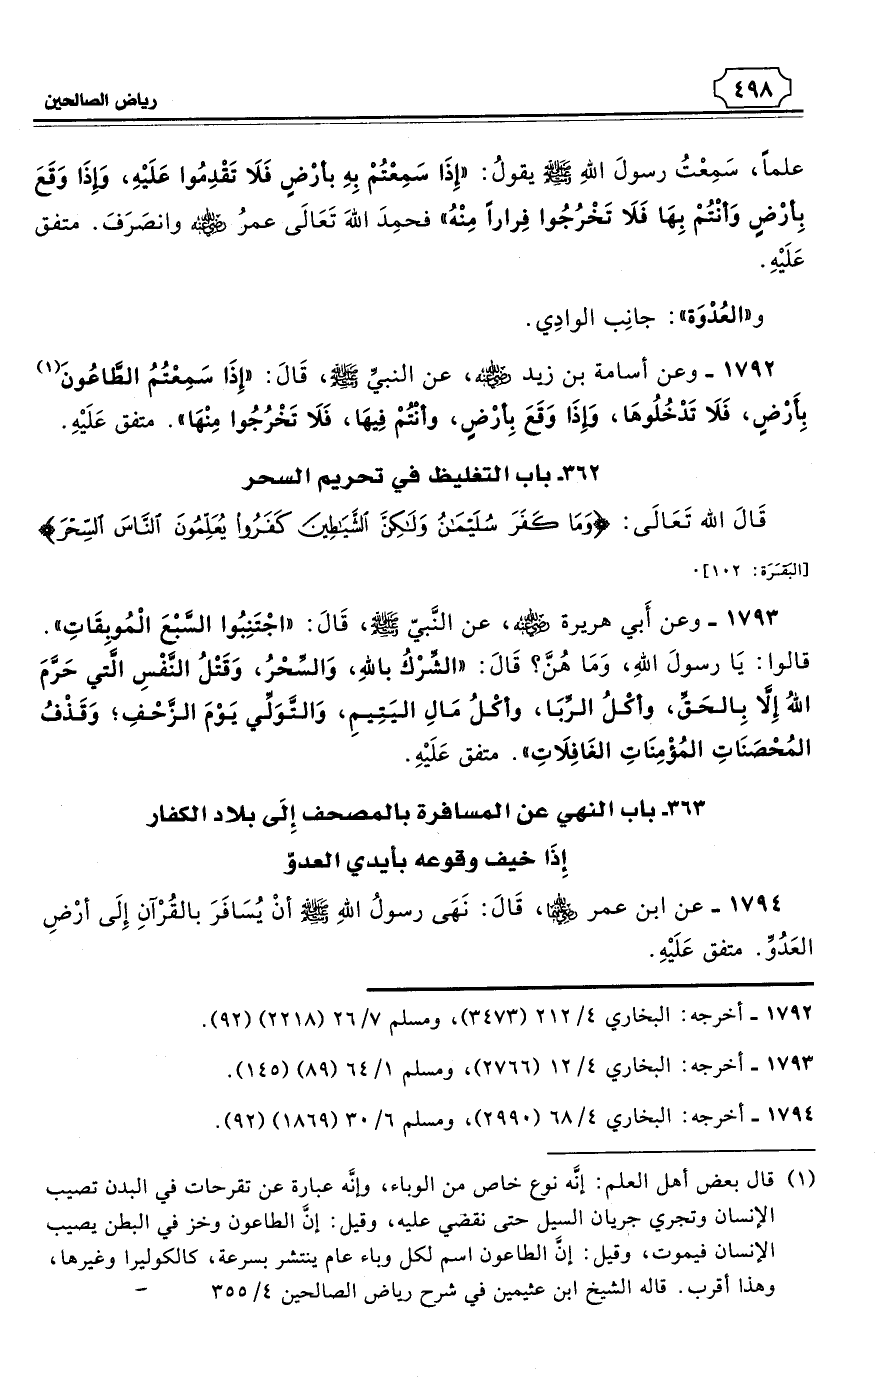 ٤٩٨
رياض الصالحين
علماً، سَمِعْتُ رسولَ اللهِ ﷺ يقولُ: «إِذَا سَمِعْتُمْ بِهِ بأرْضٍ فَلَا تَقْدِمُوا عَلَيْهِ، وَإِذَا وَقَعَ
بِأرْضٍ وَأنْتُمْ بِهَا فَلَا تَخْرُجُوا فِراراً مِنْهُ» فحمِدَ اللهَ تَعَالَى عمرُ رضي الله عنه وانصَرَفَ. متفق
عَلَيْهِ.
و«العُدْوَة»: جانِب الوادِي.
١٧٩٢ ـ وعن أسامة بن زيد رضي الله عنه، عن النبيِّ ﷺ، قَالَ: «إِذَا سَمِعْتُمُ الطَّاعُونَ(١)
بِأَرْضٍ، فَلَا تَدْخُلُوهَا، وَإِذَا وَقَعَ بِأَرْضٍ، وأنْتُمْ فِيهَا، فَلَا تَخْرُجُوا مِنْهَا». متفق عَلَيْهِ.
٣٦٢ـ باب التغليظ في تحريم السحر
قَالَ الله تَعَالَى: ﴿وَمَا كَفَرَ سُلَيْمَٰنُ وَلَٰكِنَّ ٱلشَّيَٰطِينَ كَفَرُوا۟ يُعَلِّمُونَ ٱلنَّاسَ ٱلسِّحْرَ﴾
[البَقَرَة: ١٠٢].
١٧٩٣ ـ وعن أَبي هريرة رضي الله عنه، عن النَّبيِّ ﷺ، قَالَ: «اجْتَنِبُوا السَّبْعَ الْمُوبِقَاتِ».
قالوا: يَا رسولَ اللهِ، وَمَا هُنَّ؟ قَالَ: «الشِّرْكُ باللهِ، وَالسِّحْرُ، وَقَتْلُ النَّفْسِ الَّتي حَرَّمَ
اللهُ إلَّا بِالحَقِّ، وأكْلُ الرِّبَا، وأكْلُ مَالِ اليَتِيمِ، وَالتَّوَلِّي يَوْمَ الزَّحْفِ؛ وَقَذْفُ
المُحْصَنَاتِ المُؤْمِنَاتِ الغَافِلَاتِ». متفق عَلَيْهِ.
٣٦٣ـ باب النهي عن المسافرة بالمصحف إِلَى بلاد الكفار
إِذَا خيف وقوعه بأيدي العدوّ
١٧٩٤ ـ عن ابن عمر رضي الله عنهما، قَالَ: نَهَى رسولُ اللهِ ﷺ أنْ يُسَافَرَ بالقُرْآنِ إِلَى أرْضِ
العَدُوِّ. متفق عَلَيْهِ.
١٧٩٢ ـ أخرجه: البخاري ٤/ ٢١٢ (٣٤٧٣)، ومسلم ٧/ ٢٦ (٢٢١٨) (٩٢).
١٧٩٣ ـ أخرجه: البخاري ٤/ ١٢ (٢٧٦٦)، ومسلم ١/ ٦٤ (٨٩) (١٤٥).
١٧٩٤ ـ أخرجه: البخاري ٤/ ٦٨ (٢٩٩٠)، ومسلم ٦/ ٣٠ (١٨٦٩) (٩٢).
(١) قال بعض أهل العلم: إنَّه نوع خاص من الوباء، وإنَّه عبارة عن تقرحات في البدن تصيب
الإنسان وتجري جريان السيل حتى تقضي عليه، وقيل: إنَّ الطاعون وخز في البطن يصيب
الإنسان فيموت، وقيل: إنَّ الطاعون اسم لكل وباء عام ينتشر بسرعة، كالكوليرا وغيرها،
وهذا أقرب. قاله الشيخ ابن عثيمين في شرح رياض الصالحين ٤/ ٣٥٥